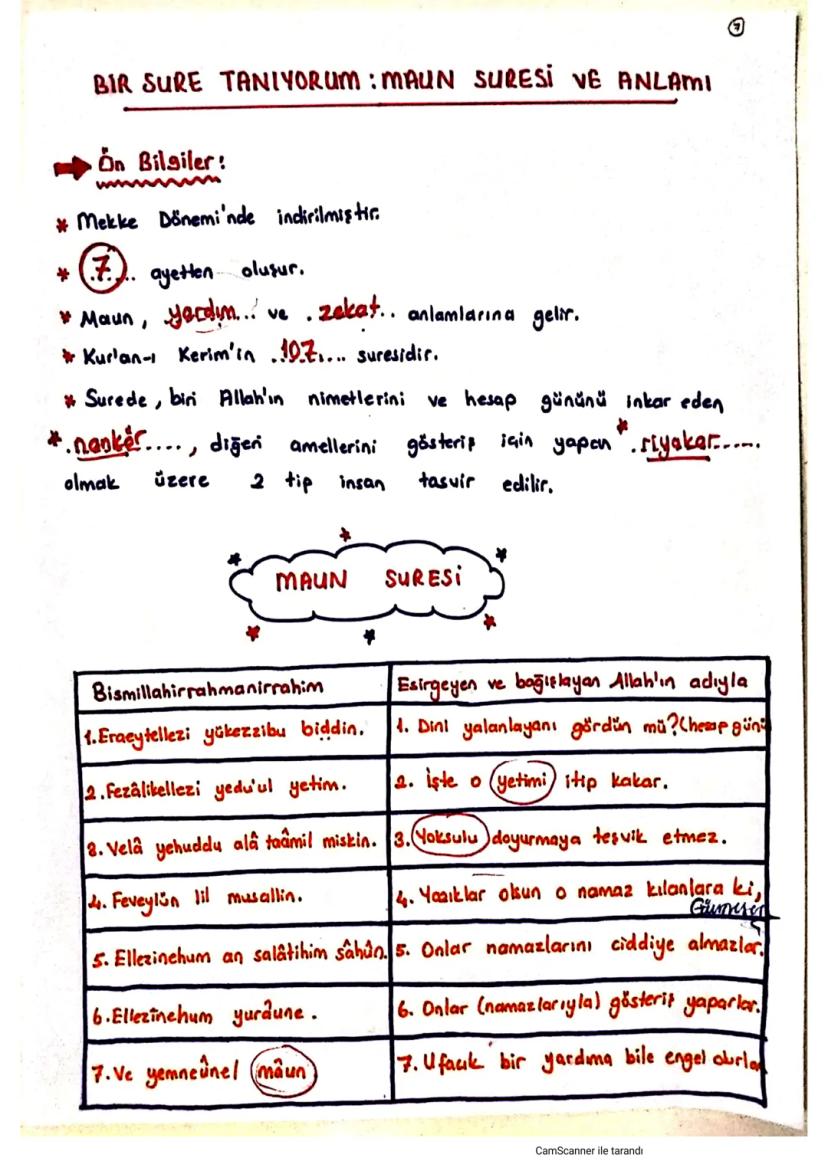 7
BİR SURE TANIYORUM : MAUN SURESİ VE ANLAMI
Ön Bilgiler :
* Mekke Dönemi'nde indirilmiştir.
* 7 ayetten oluşur.
* Maun, yardım... ve . zekat.. anlamlarına gelir.
* Kur'an-ı Kerim'in ..107.... suresidir.
* Surede, biri Allah'ın nimetlerini ve hesap gününü inkar eden
*.nankör...., diğeri amellerini gösteriş için yapan *.riyakar......
olmak üzere 2 tip insan tasvir edilir.
MAUN SURESİ
Bismillahirrahmanirrahim
Esirgeyen ve bağışlayan Allah'ın adıyla
1.Eraeytellezi yükezzibu biddin.
1. Dini yalanlayanı gördün mü?(hesap günü
2.Fezâlikellezi yedu'ul yetim.
2. İşte o yetimi itip kakar.
3.Velâ yehuddu alâ taâmil miskin.
3. Yoksulu doyurmaya teşvik etmez.
4. Feveylün lil musallin.
4. Yazıklar olsun o namaz kılanlara ki,
5. Ellezinehum an salâtihim sâhûn.
5. Onlar namazlarını ciddiye almazlar.
6.Ellezînehum yurâune.
6. Onlar (namazlarıyla) gösteriş yaparlar.
7.Ve yemneûnel mâun
7. Ufacık bir yardıma bile engel olurla
CamScanner ile tarandı